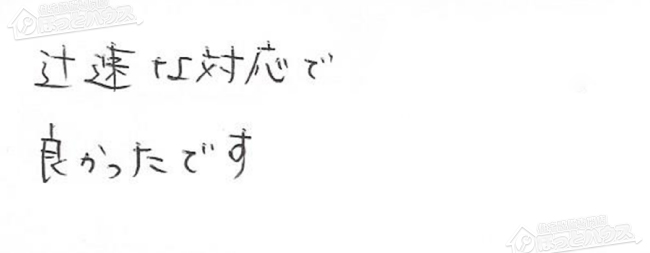 迅速な対応で
良かったです